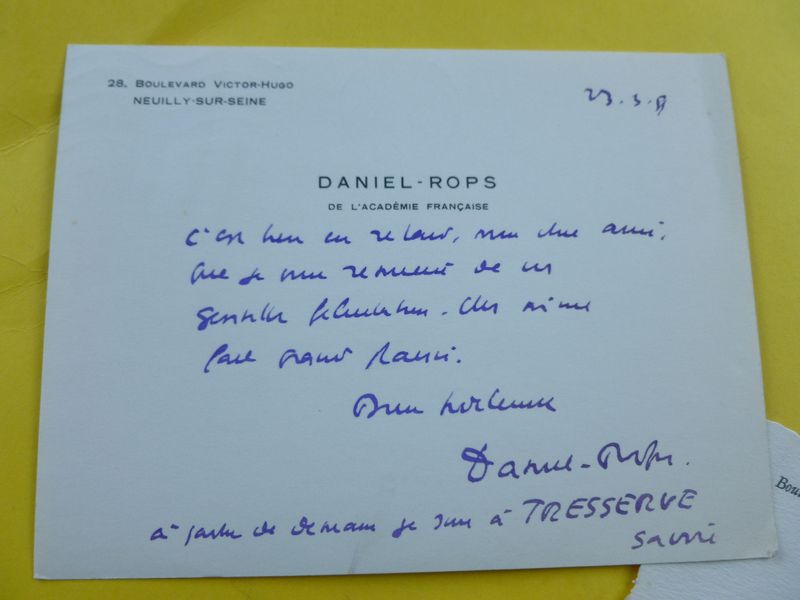 28, BOULEVARD VICTOR-HUGO
NEUILLY-SUR-SEINE
23.3.
DANIEL-ROPS
DE L'ACADÉMIE FRANÇAISE
C'est bien en retard, mon cher ami,
que je vous remercie de vos
gentilles félicitations. Elles m'ont
fait grand plaisir.
Bien
Daniel-Rops.
à partir de demain je suis à TRESSERVE
Savoie
Bou